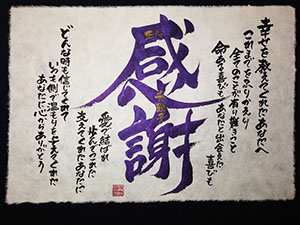 幸せを教えてくれたあなたへ
これまでをふりかえり
全てのことが有り難きこと
命ある喜びも あなたと出会えた
喜びも
感謝
愛で結ばれ
歩んでくれた
支えてくれたあなたに
どんな時も信じてくれて
いつも側で温もりを与えてくれた
あなたに心からありがとう